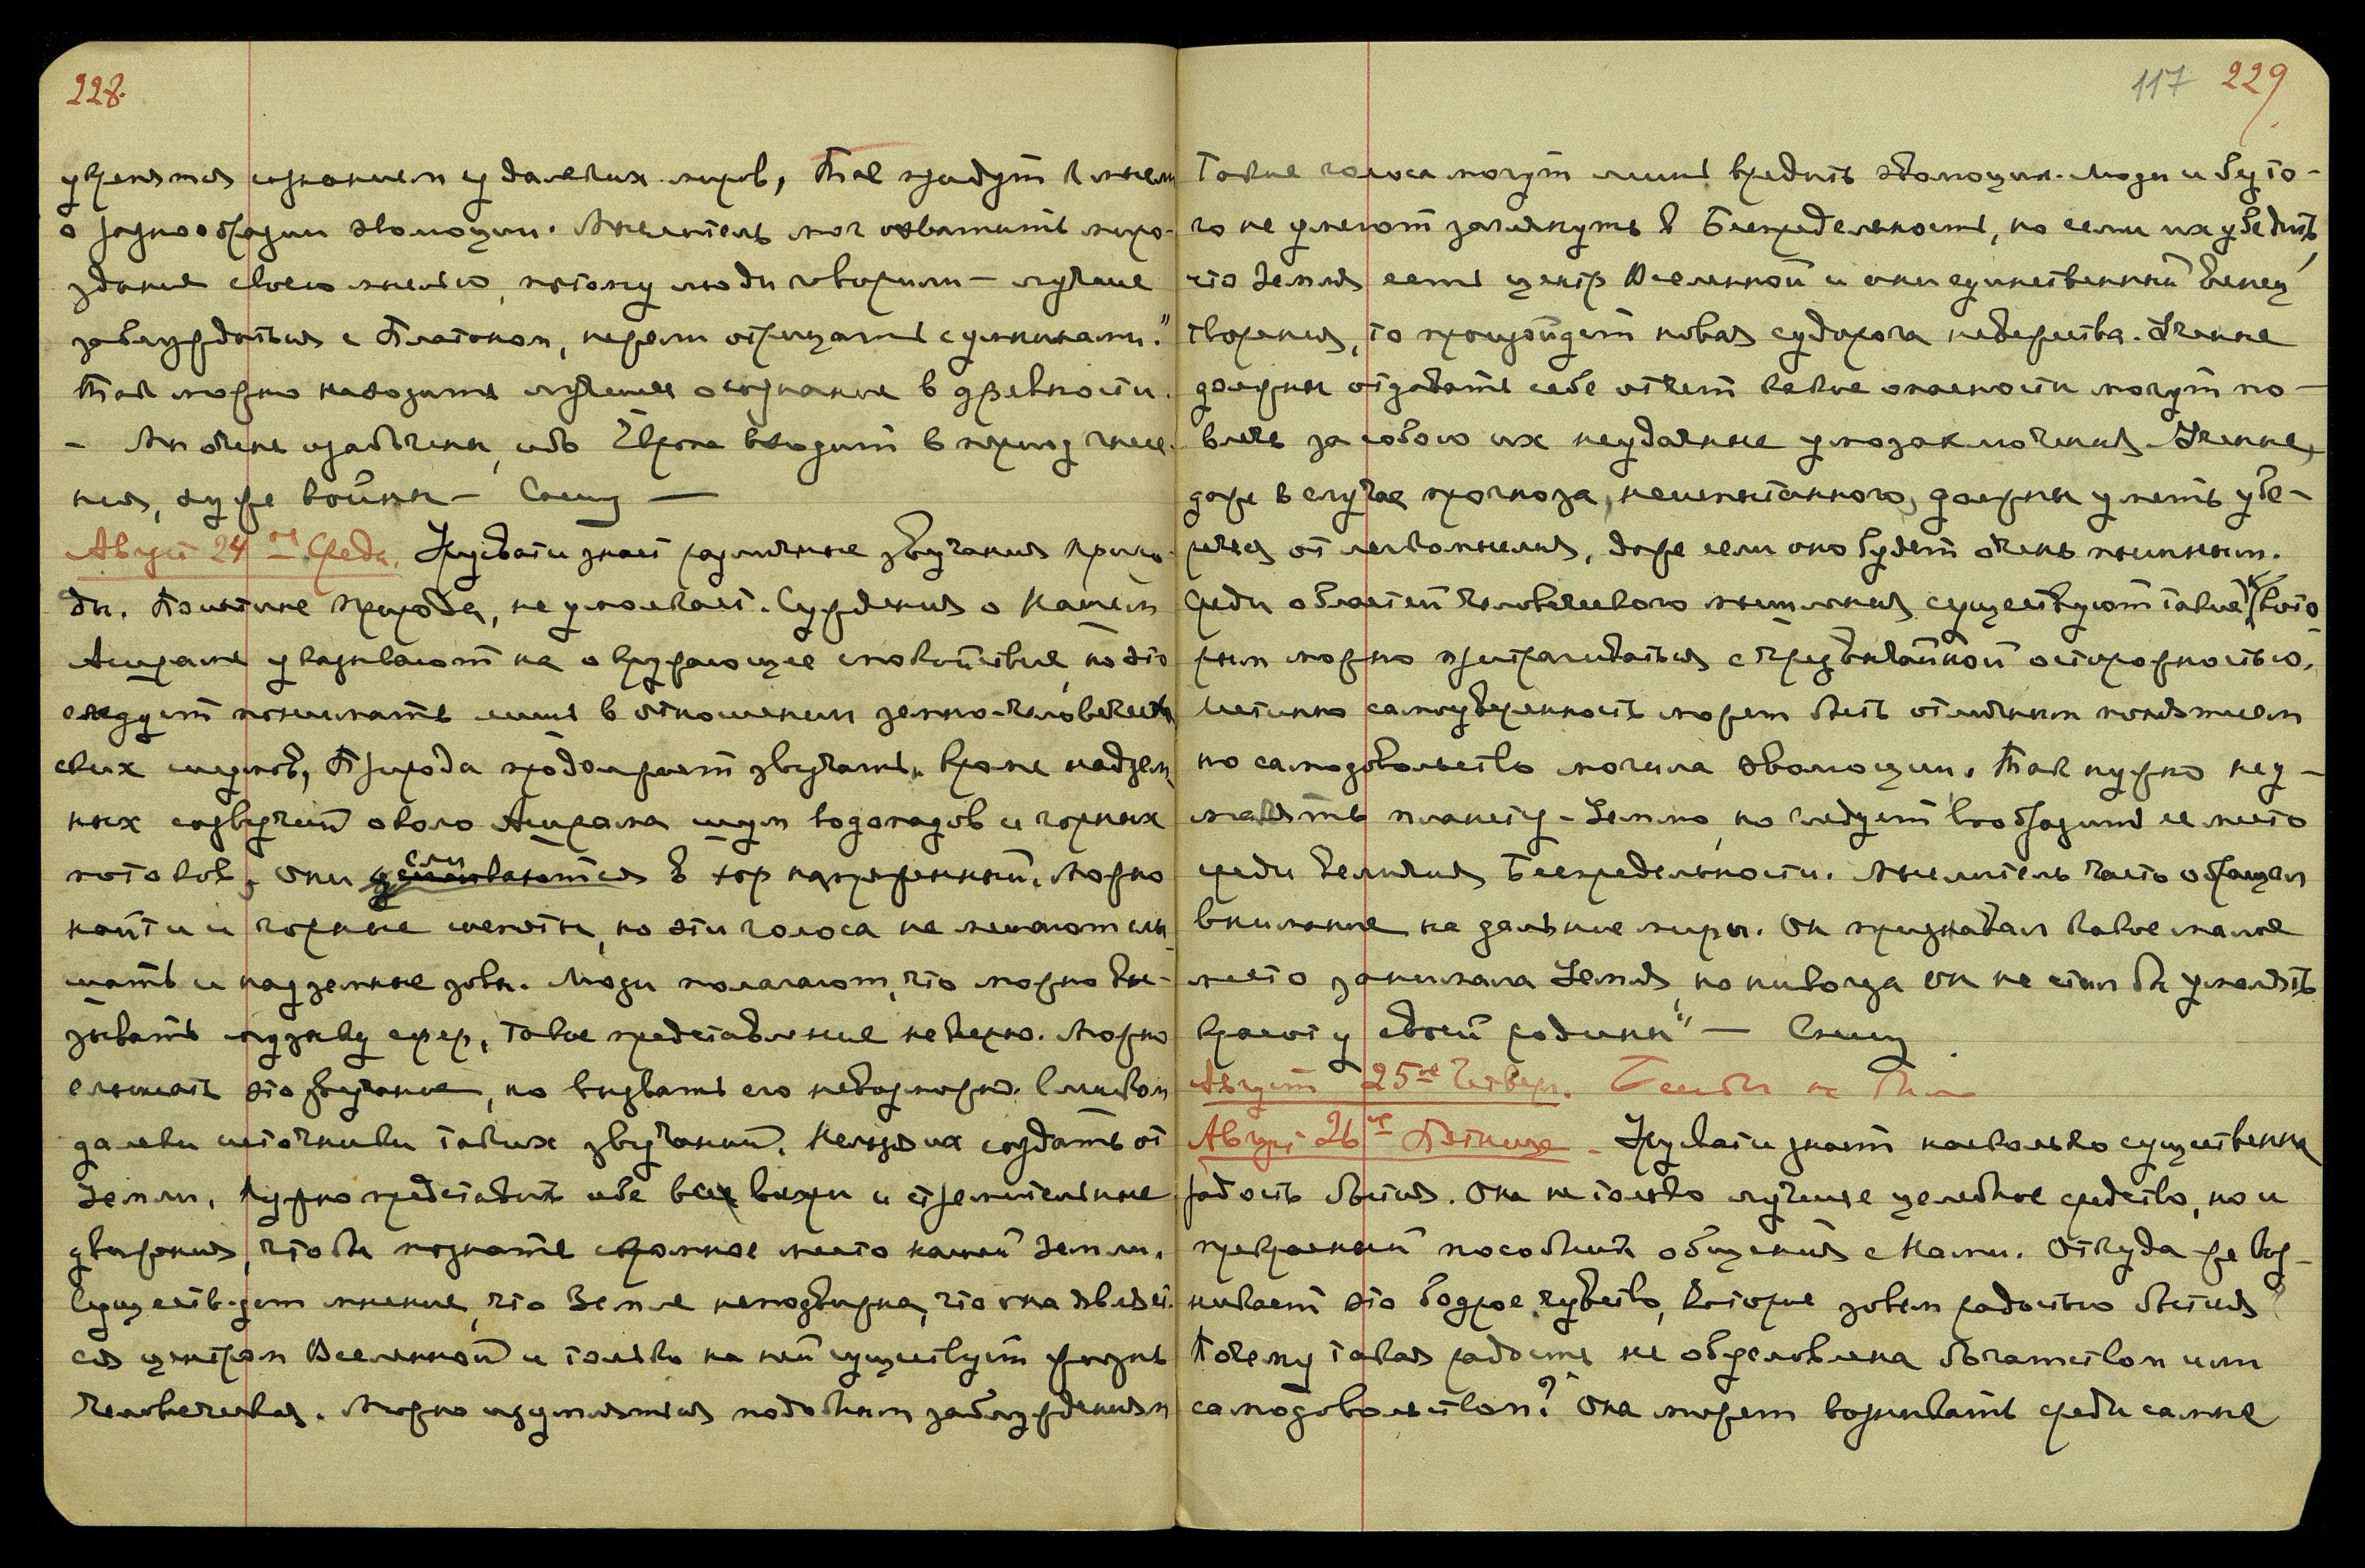 228.
укрепятся сознанием у далеких миров, Так придут к мысли
о разнообразии эволюции. Мыслитель мог охватить миро-
здание своею мыслью, потому люди говорили — лучше
заблуждаться с Платоном, нежели отрицать с умниками."
Так можно находить лучшее осознание в древности.
— Мы очень озабочены, ибо Европа входит в период
ния, хуже войны —
Август 24ое Среда. Урусвати знает различные звучания приро-
ды. Поистине природа, не умолкает. Суждения о Нашем
Ашраме указывают на окружающее спокойствие, но это
следует понимать лишь в отношении земно-человечес-
ких шумов, Природа продолжает звучать. Кроме надзем-
ных созвучий около Ашрама шум водопадов и горных
потоков, они сливаются в хор напряженный. Можно
найти и горные шепоты, но эти голоса не мешают слы-
шать и надземные зовы. Люди полагают, что можно вы-
зывать музыку сфер, такое представление неверно. Можно
слышать это звучание, но вызвать его невозможно. Слишком
далеки источники таких звучаний. Нельзя их создать от
Земли. Нужно представить себе все вихри и стремительные
движения, чтобы познать скромное место нашей Земли.
Существует мнение, что Земля неподвижна, что она являет-
ся центром Вселенной и только на ней существует жизнь
человеческая. Можно изумляться подобным заблуждениям
117 229
Такие голоса могут лишь вредить эволюции. Люди и без то-
го не умеют заглянуть в Беспредельность, но если их убедить,
что Земля есть центр Вселенной и они единственный венец
творения, то произойдет новая судорога невежества. Ученые
должны отдавать себе отчет какие опасности могут по-
влечь за собою их неудачные умозаключения. Ученые,
даже в случае прогноза, неиспытанного, должны уметь убе-
речься от легкомыслия, даже если оно будет очень пышным.
Среди областей человеческого мышления существуют такие, к кото-
рым можно притрагиваться с чрезвычайной осторожностью.
Истинно самоуверенность может быть отличным понятием
но самодовольство могила эволюции. Так нужно не у-
малять планету - Землю, но следует вообразить ее место
среди величия Беспредельности. Мыслитель часто обращал
внимание на дальние миры. Он признавал какое малое
место занимала Земля, но никогда он не стал бы умалять
красоту своей родины" —
Август 25ое Четверг. Беседы не было
Август 26ое Пятница — Урусвати знает насколько существенна
радость бытия. Она не только лучшее целебное средство, но и
прекрасный пособник общения с Нами. Откуда же воз-
никает это бодрое чувство, которое зовем радостью бытия?
Почему такая радость не обусловлена богатством или
самодовольством? Она может возникать среди самых